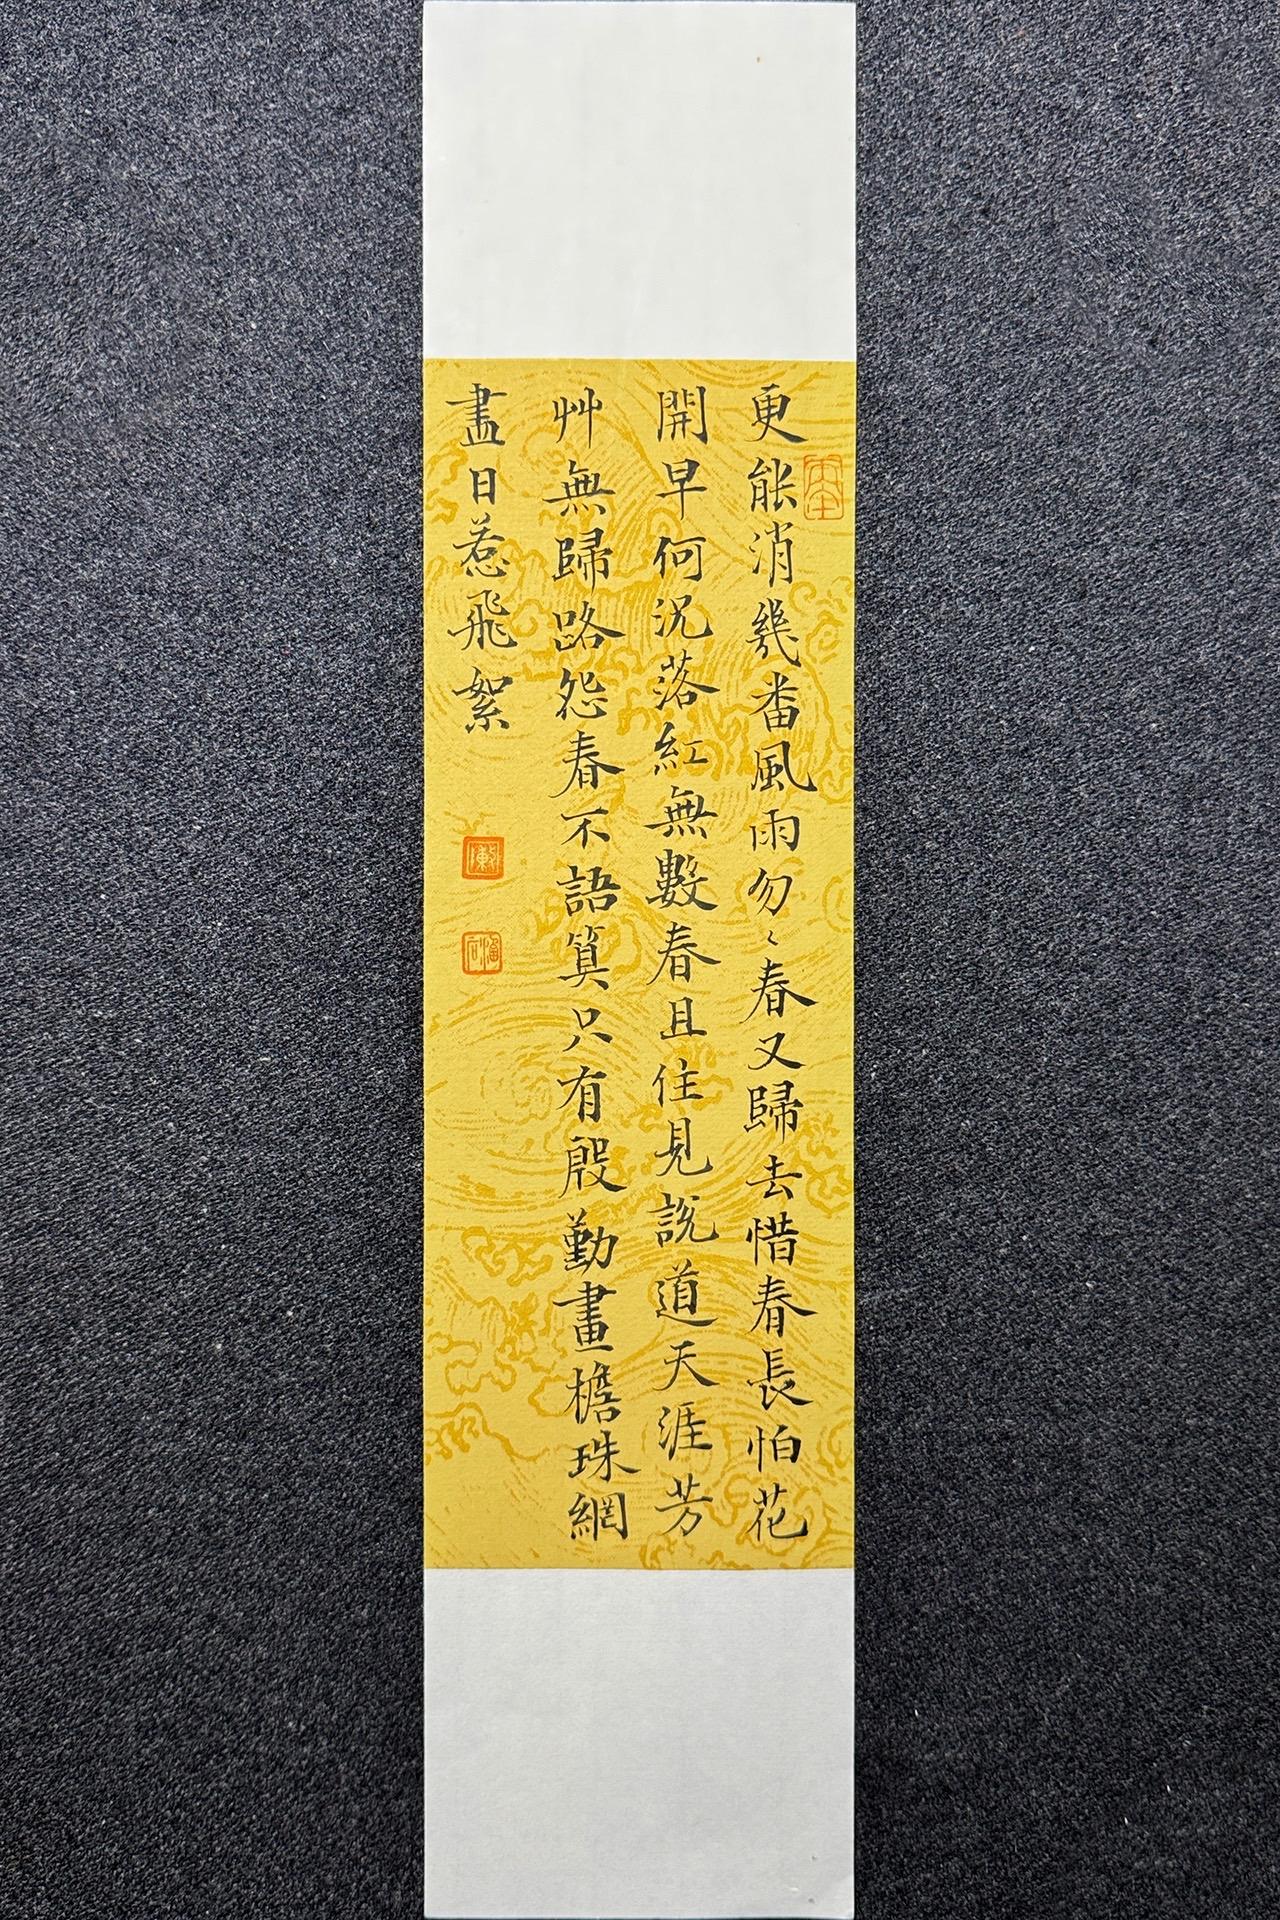 更能消幾番風雨勿〻春又歸去惜春長怕花
開早何況落紅無數春且住見說道天涯芳
艸無歸路怨春不語算只有殷勤畫檐珠網
盡日惹飛絮